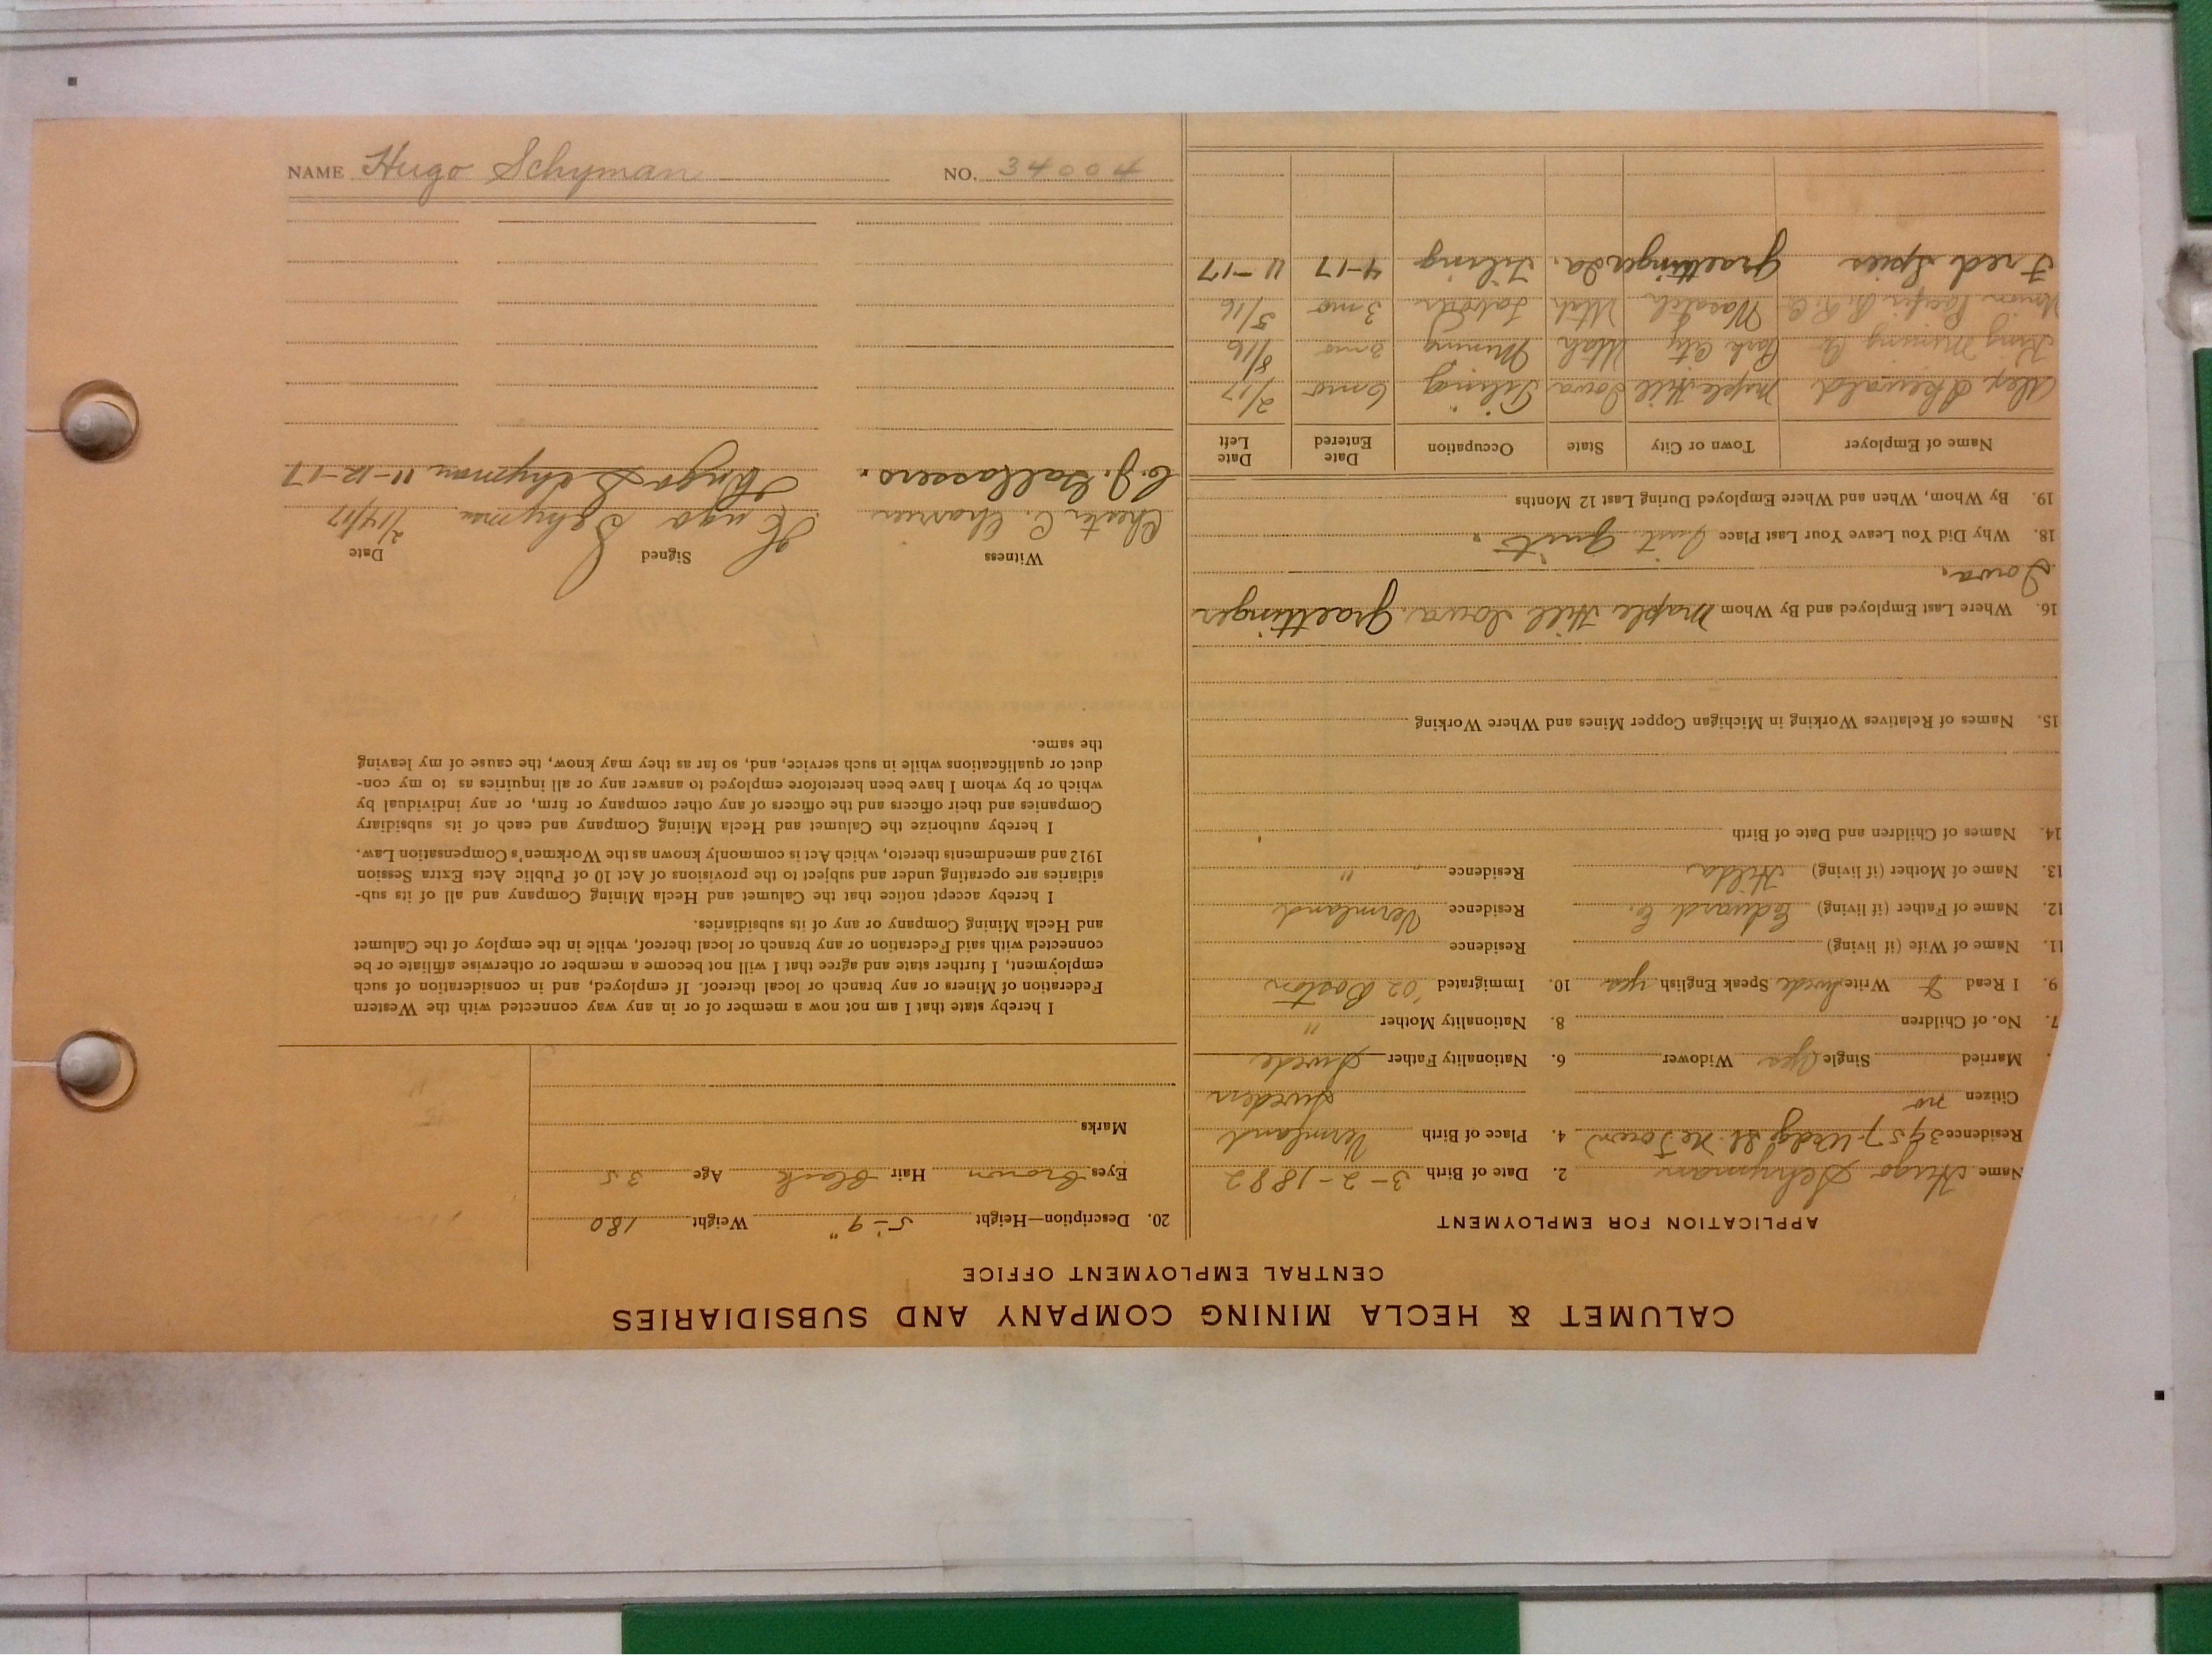 CALUMET & HECLA MINING COMPANY AND SUBSIDIARIES
CENTRAL EMPLOYMENT OFFICE
APPLICATION FOR EMPLOYMENT
Name Hugo Schyman 2. Date of Birth 3-2-1882
Residence 3957 St. 4. Place of Birth Vermland
Citizen no Sweden
Married Single Yes Widower 6. Nationality Father Swede
7. No. of Children 8. Nationality Mother "
9. I Read & Write Swede Speak English yes 10. Immigrated '02 Boston
11. Name of Wife (if living) Residence
12. Name of Father (if living) Edward E. Residence Vermland
13. Name of Mother (if living) Hilda Residence " "
14. Names of Children and Date of Birth
15. Names of Relatives Working in Michigan Copper Mines and Where Working
16. Where Last Employed and By Whom Maple Hill Iowa, Graettinger
Iowa.
18. Why Did You Leave Your Last Place Just quit.
19. By Whom, When and Where Employed During Last 12 Months
Name of Employer Town or City State Occupation Date Entered Date Left
Alex Maple Hill Iowa Tiling 6 mo 2/17
King Mining Co Park City Utah Mining 3 mo 8/16
Union Pacific R.R. Co Wasatch Utah Laborer 3 mo 5/16
Fred Spies Graettinger Ia. Tiling 4-17 11-17
20. Description—Height 5'-9" Weight 180
Eyes Brown Hair Black Age 35
Marks
I hereby state that I am not now a member of or in any way connected with the Western
Federation of Miners or any branch or local thereof. If employed, and in consideration of such
employment, I further state and agree that I will not become a member or otherwise affiliate or be
connected with said Federation or any branch or local thereof, while in the employ of the Calumet
and Hecla Mining Company or any of its subsidiaries.
I hereby accept notice that the Calumet and Hecla Mining Company and all of its sub-
sidiaries are operating under and subject to the provisions of Act 10 of Public Acts Extra Session
1912 and amendments thereto, which Act is commonly known as the Workmen's Compensation Law.
I hereby authorize the Calumet and Hecla Mining Company and each of its subsidiary
Companies and their officers and the officers of any other company or firm, or any individual by
which or by whom I have been heretofore employed to answer any or all inquiries as to my con-
duct or qualifications while in such service, and, so far as they may know, the cause of my leaving
the same.
Witness Signed Date
Chester C. Hugo Schyman 2/14/17
C. J. Hugo Schyman 11-12-17
NAME Hugo Schyman NO. 34004